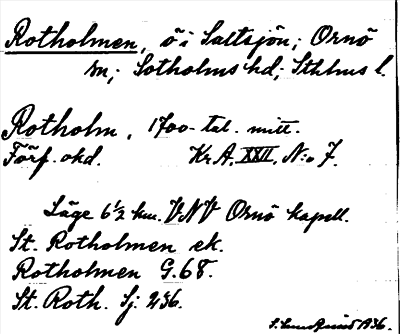 Rotholmen, ö i Saltsjön; Ornö
sn; Sotholms hd, Sthlms l.
Rotholm, 1700-tal. mitt.
Förf. okd. Kr.A. XXII, N:o 7.
Läge 6½ km. VNV Ornö kapell.
St. Rotholmen ek.
Rotholmen G.68.
St. Roth. Sj. 236.
1936.